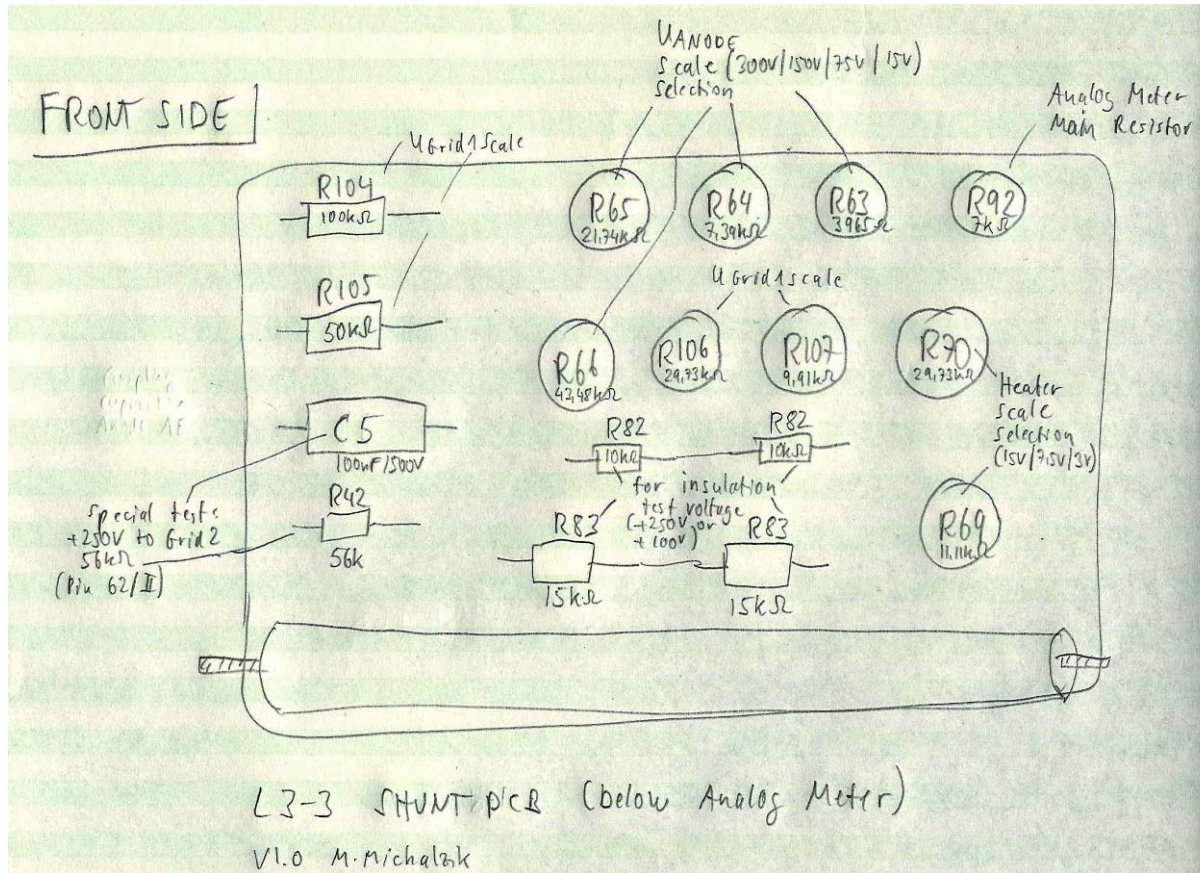 UANODE
Scale (300V/150V/75V/15V)
Selection
FRONT SIDE!
Analog Meter
Main Resistor
UGrid1Scale
R104
100kΩ
R65
21,74kΩ
R64
7,39kΩ
R63
3965Ω
R92
7kΩ
R105
50kΩ
UGrid1scale
R66
43,48kΩ
R106
29,73kΩ
R107
9,91kΩ
R70
29,73kΩ
Heater
Scale
Selection
(15V/7,5V/3V)
C5
100nF/500V
R82
10kΩ
R82
10kΩ
for insulation
test voltage
(+250V or
+100V)
Special test:
+250V to Grid2
56kΩ
(Pin 62/II)
R42
56k
R83
15kΩ
R83
15kΩ
R69
11,11kΩ
L3-3 SHUNT-PCB (below Analog Meter)
V1.0 M.Michalzik